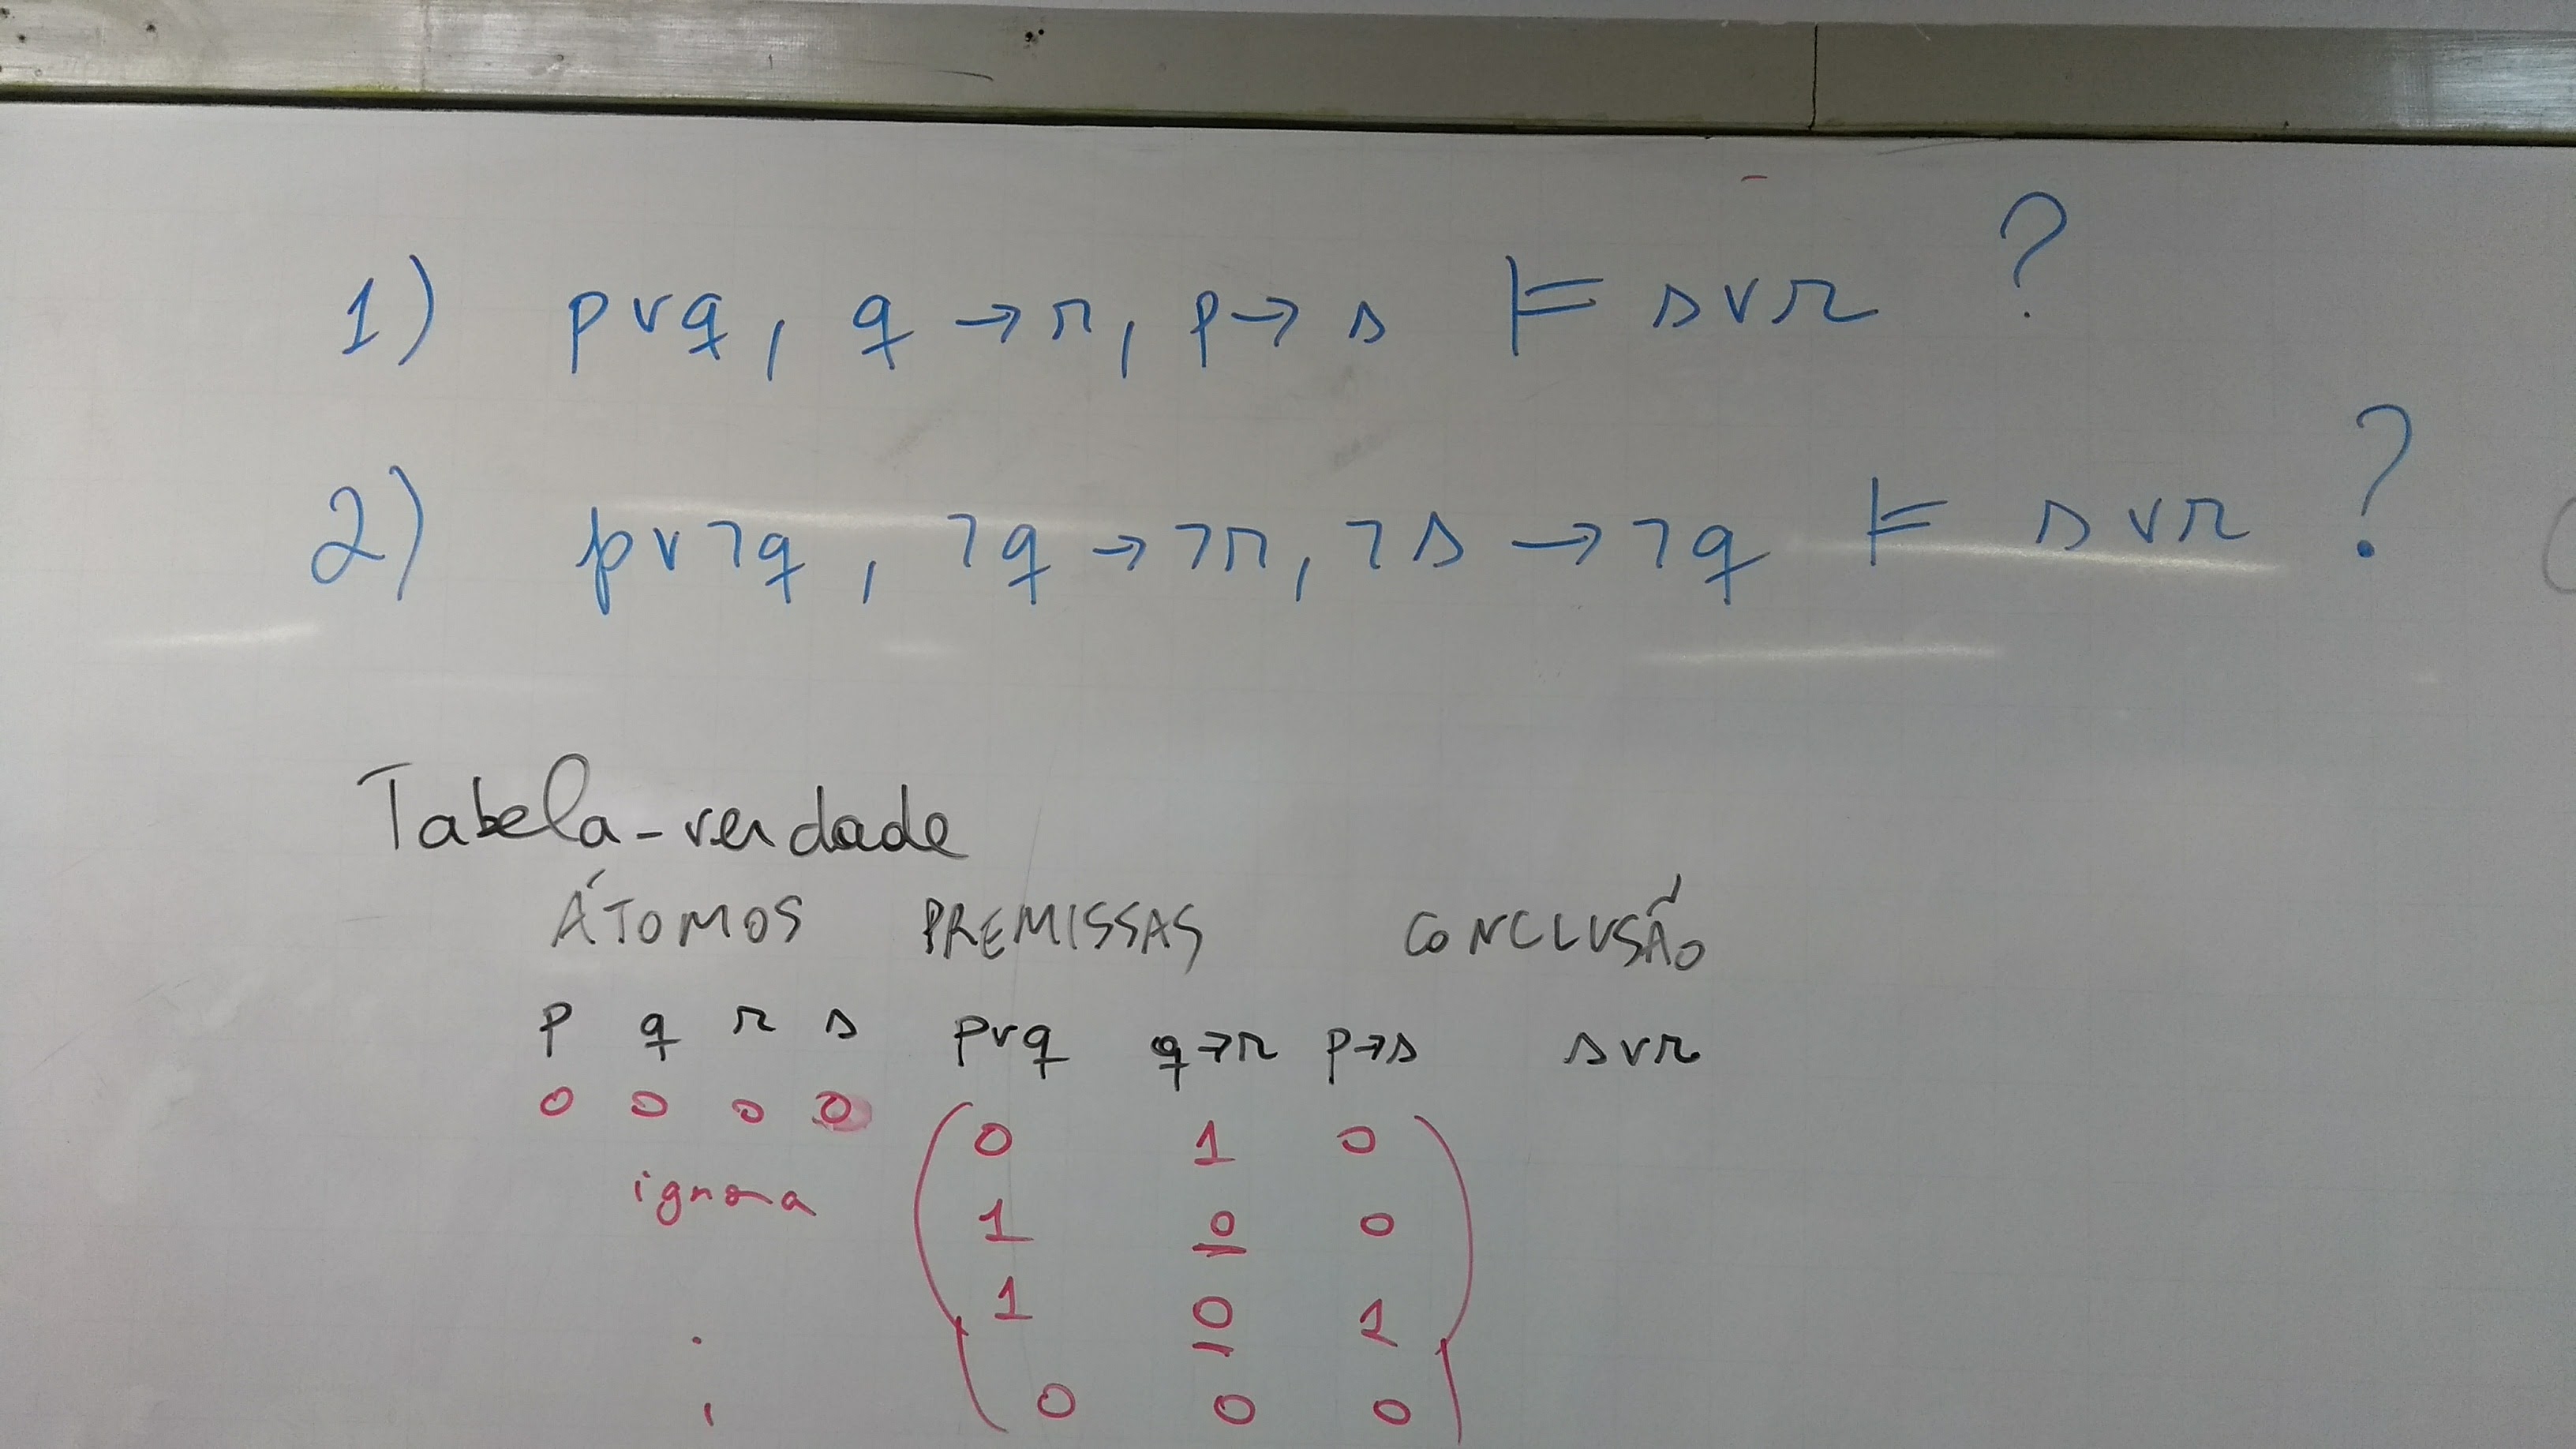 1) p ∨ q, q → r, p → s ⊨ s ∨ r ?
2) p ∨ ¬q, ¬q → ¬r, ¬s → ¬q ⊨ s ∨ r ?
Tabela-verdade
ÁTOMOS PREMISSAS CONCLUSÃO
p q r s p∨q q→r p→s s∨r
0 0 0 0 0 1 0
ignora 1 0 0
1 0 1
0 0 0